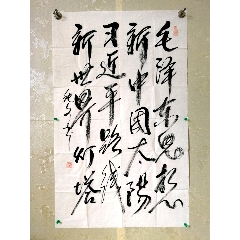 毛泽东思想
新中国太阳
习近平路线
新世界灯塔